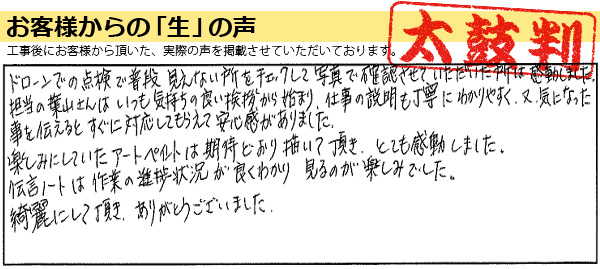 お客様からの「生」の声
工事後にお客様から頂いた、実際の声を掲載させていただいております。
太鼓判
ドローンでの点検で普段見えない所をチェックして写真で確認させていただけた所は感動しました。
担当の葉山さんはいつも気持ちの良い挨拶から始まり、仕事の説明も丁寧にわかりやすく、又、気になった
事を伝えるとすぐに対応してもらえて安心感がありました。
楽しみにしていたアートペイントは期待どおり描いて頂き、とても感動しました。
伝言ノートは作業の進捗状況が良くわかり見るのが楽しみでした。
綺麗にして頂き、ありがとうございました。